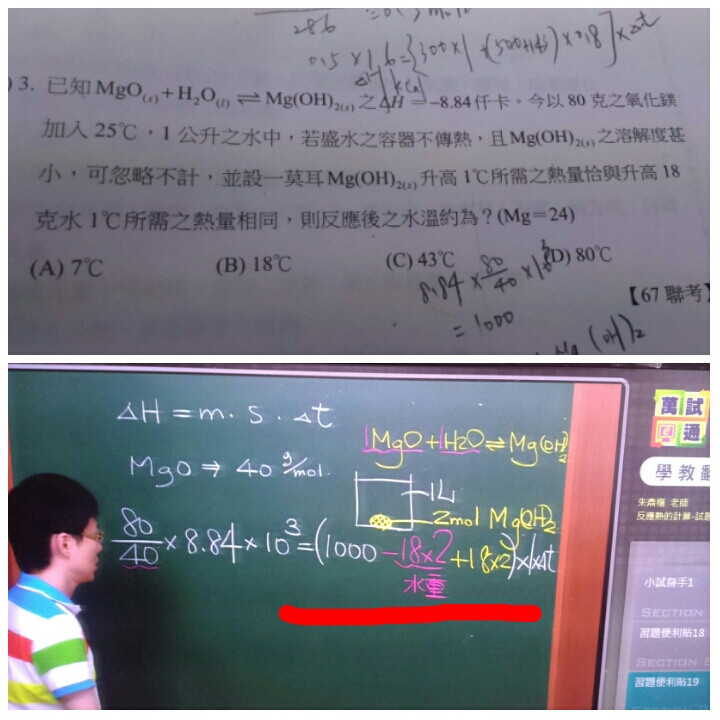 286
0.5 × 1.6 = {300×1 + (500+1.6) × 0.18} × Δt
kcal
3. 已知 MgO(s) + H₂O(l) ⇌ Mg(OH)₂(s) 之 ΔH = −8.84 仟卡。今以 80 克之氧化鎂
加入 25℃，1 公升之水中，若盛水之容器不傳熱，且 Mg(OH)₂(s) 之溶解度甚
小，可忽略不計，並設一莫耳 Mg(OH)₂(s) 升高 1℃ 所需之熱量恰與升高 18
克水 1℃ 所需之熱量相同，則反應後之水溫約為？(Mg＝24)
(A) 7℃ (B) 18℃ (C) 43℃ (D) 80℃
8.84 × 80/40 × 10³
【67 聯考】
= 1000
Mg(OH)₂
ΔH = m · s · Δt
1MgO + 1H₂O ⇌ Mg(OH)₂
MgO ⇒ 40 g/mol.
1L
2mol Mg(OH)₂
80/40 × 8.84 × 10³ = (1000 − 18×2 + 18×2) × 1 × Δt
水重
萬試
通
學教翻
朱鼎樞 老師
反應熱的計算-試題
小試身手1
SECTION
習題便利貼18
SECTION
習題便利貼19